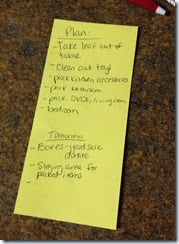 Plan:
- Take leaf out of
table
- Clean out toys
- pack kitchen accessories
- pack bathroom
- pack DVDs, living room
- bedroom
Tomorrow
- Boxes - yard sale
donate
- Staging area for
packed items
-